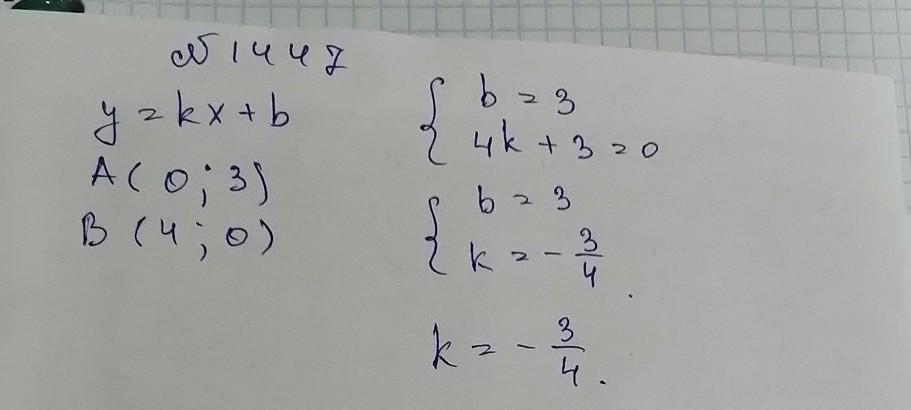 № 1447
y = kx + b
A ( 0 ; 3 )
B ( 4 ; 0 )
{ b = 3
4k + 3 = 0
{ b = 3
k = - 3/4 .
k = - 3/4 .